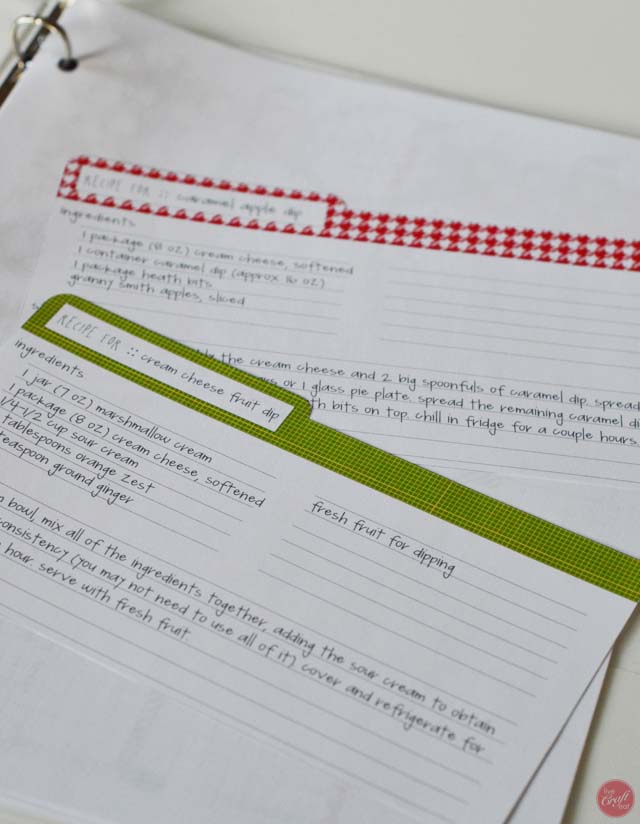 RECIPE FOR :: caramel apple dip
ingredients
1 package (8 oz) cream cheese, softened
1 container caramel dip (approx 16 oz)
1 package heath bits
granny smith apples, sliced
the cream cheese and 2 big spoonfuls of caramel dip. spread
or 1 glass pie plate. spread the remaining caramel
bits on top. chill in fridge for a couple hours.
RECIPE FOR :: cream cheese fruit dip
ingredients
1 jar (7 oz) marshmallow cream
1 package (8 oz) cream cheese, softened
1/4-1/2 cup sour cream
tablespoons orange zest
teaspoon ground ginger
fresh fruit for dipping
bowl, mix all of the ingredients together, adding the sour cream to obtain
consistency (you may not need to use all of it) cover and refrigerate for
hour. serve with fresh fruit.
live
Craft
eat